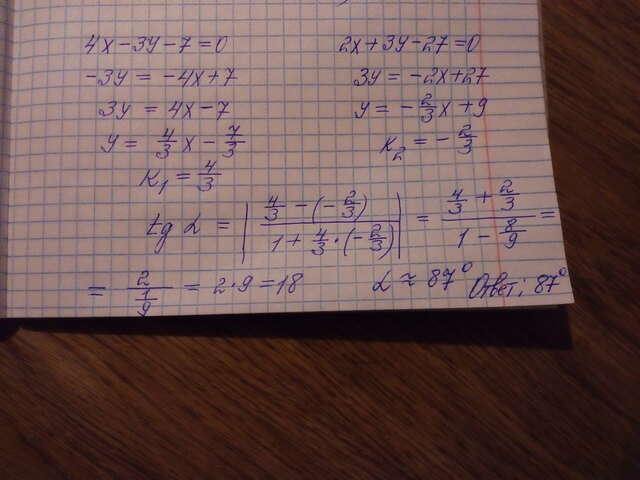 4x-3y-7=0
-3y = -4x+7
3y = 4x-7
y = 4/3 x - 7/3
K₁ = 4/3
2x+3y-27=0
3y = -2x+27
y = -2/3 x + 9
K₂ = -2/3
tg α = |(4/3 - (-2/3))/(1 + 4/3 · (-2/3))| = (4/3 + 2/3)/(1 - 8/9) =
= 2/(1/9) = 2·9 = 18 α ≈ 87° Ответ: 87°